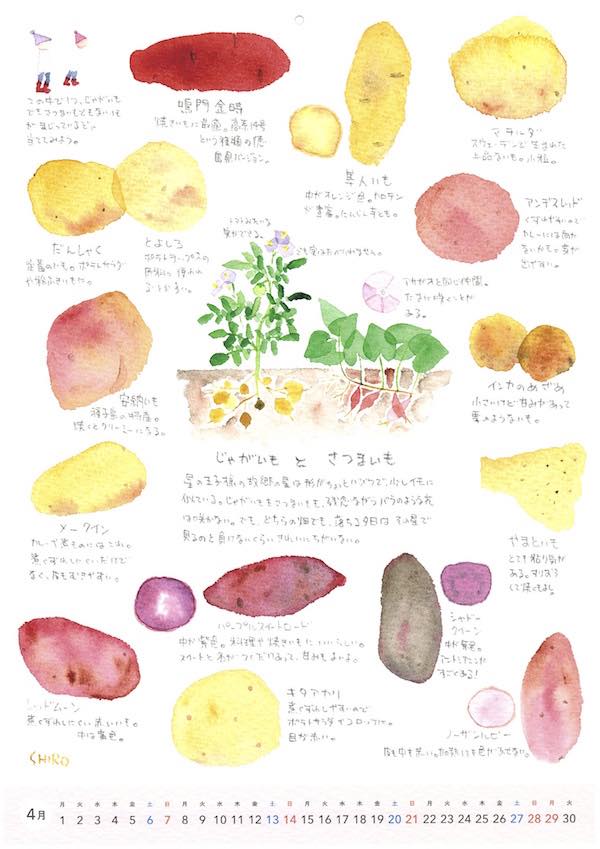 この中に1つ、じゃがいも
でもさつまいもでもないいも
がまじっているぞ。
当ててみよう。
鳴門金時
焼きいもに最適。高系14号
という種類の徳
島県バージョン。
隼人いも
中がオレンジ色。カロテン
が豊富。にんじん芋とも。
マチルダ
スウェーデンで生まれた
上品ないも。小粒。
だんしゃく
定番のいも。ポテトサラダ
や粉ふきいもに。
とよしろ
ポテトチップスの
原料に使われ
ることが多い。
トマトみたいな
実ができる。
アサガオと同じ仲間。
たまに咲くことが
ある。
アンデスレッド
くずれやすいので
カレーには向か
ないかも。芽が
出やすい。
安納いも
種子島の特産。
焼くとクリーミーになる。
インカのめざめ
小さいけど甘みがあって
栗のようないも。
じゃがいも と さつまいも
星の王子様の故郷の星は形がちょっとイビツで、少しイモに
似ている。じゃがいももさつまいもも、残念ながらバラのような花
は咲かない。でも、どちらの畑でも、落ちる夕日は
見るのと負けないくらいきれいにちがいない。
メークイン
カレーや煮ものにはこれ。
煮くずれしにくいだけで
なく、皮もむきやすい。
やまといも
とても粘り気が
ある。すりおろ
して焼くもよし。
パープルスイートロード
中が紫色。料理や焼きいもにいいらしい。
スイートと名がつくだけあって、甘みもあるよ。
シャドー
クイーン
中が紫色。
アントシアニンが
すごくある!
レッドムーン
煮くずれしにくい赤いいも。
中は黄色。
キタアカリ
煮くずれしやすいので
ポテトサラダやコロッケに。
目が赤い。
ノーザンルビー
皮も中も赤い。加熱しても色があせない。
CHIRO
4月
月 火 水 木 金 土 日 月 火 水 木 金 土 日 月 火 水 木 金 土 日 月 火 水 木 金 土 日 月 火
1 2 3 4 5 6 7 8 9 10 11 12 13 14 15 16 17 18 19 20 21 22 23 24 25 26 27 28 29 30